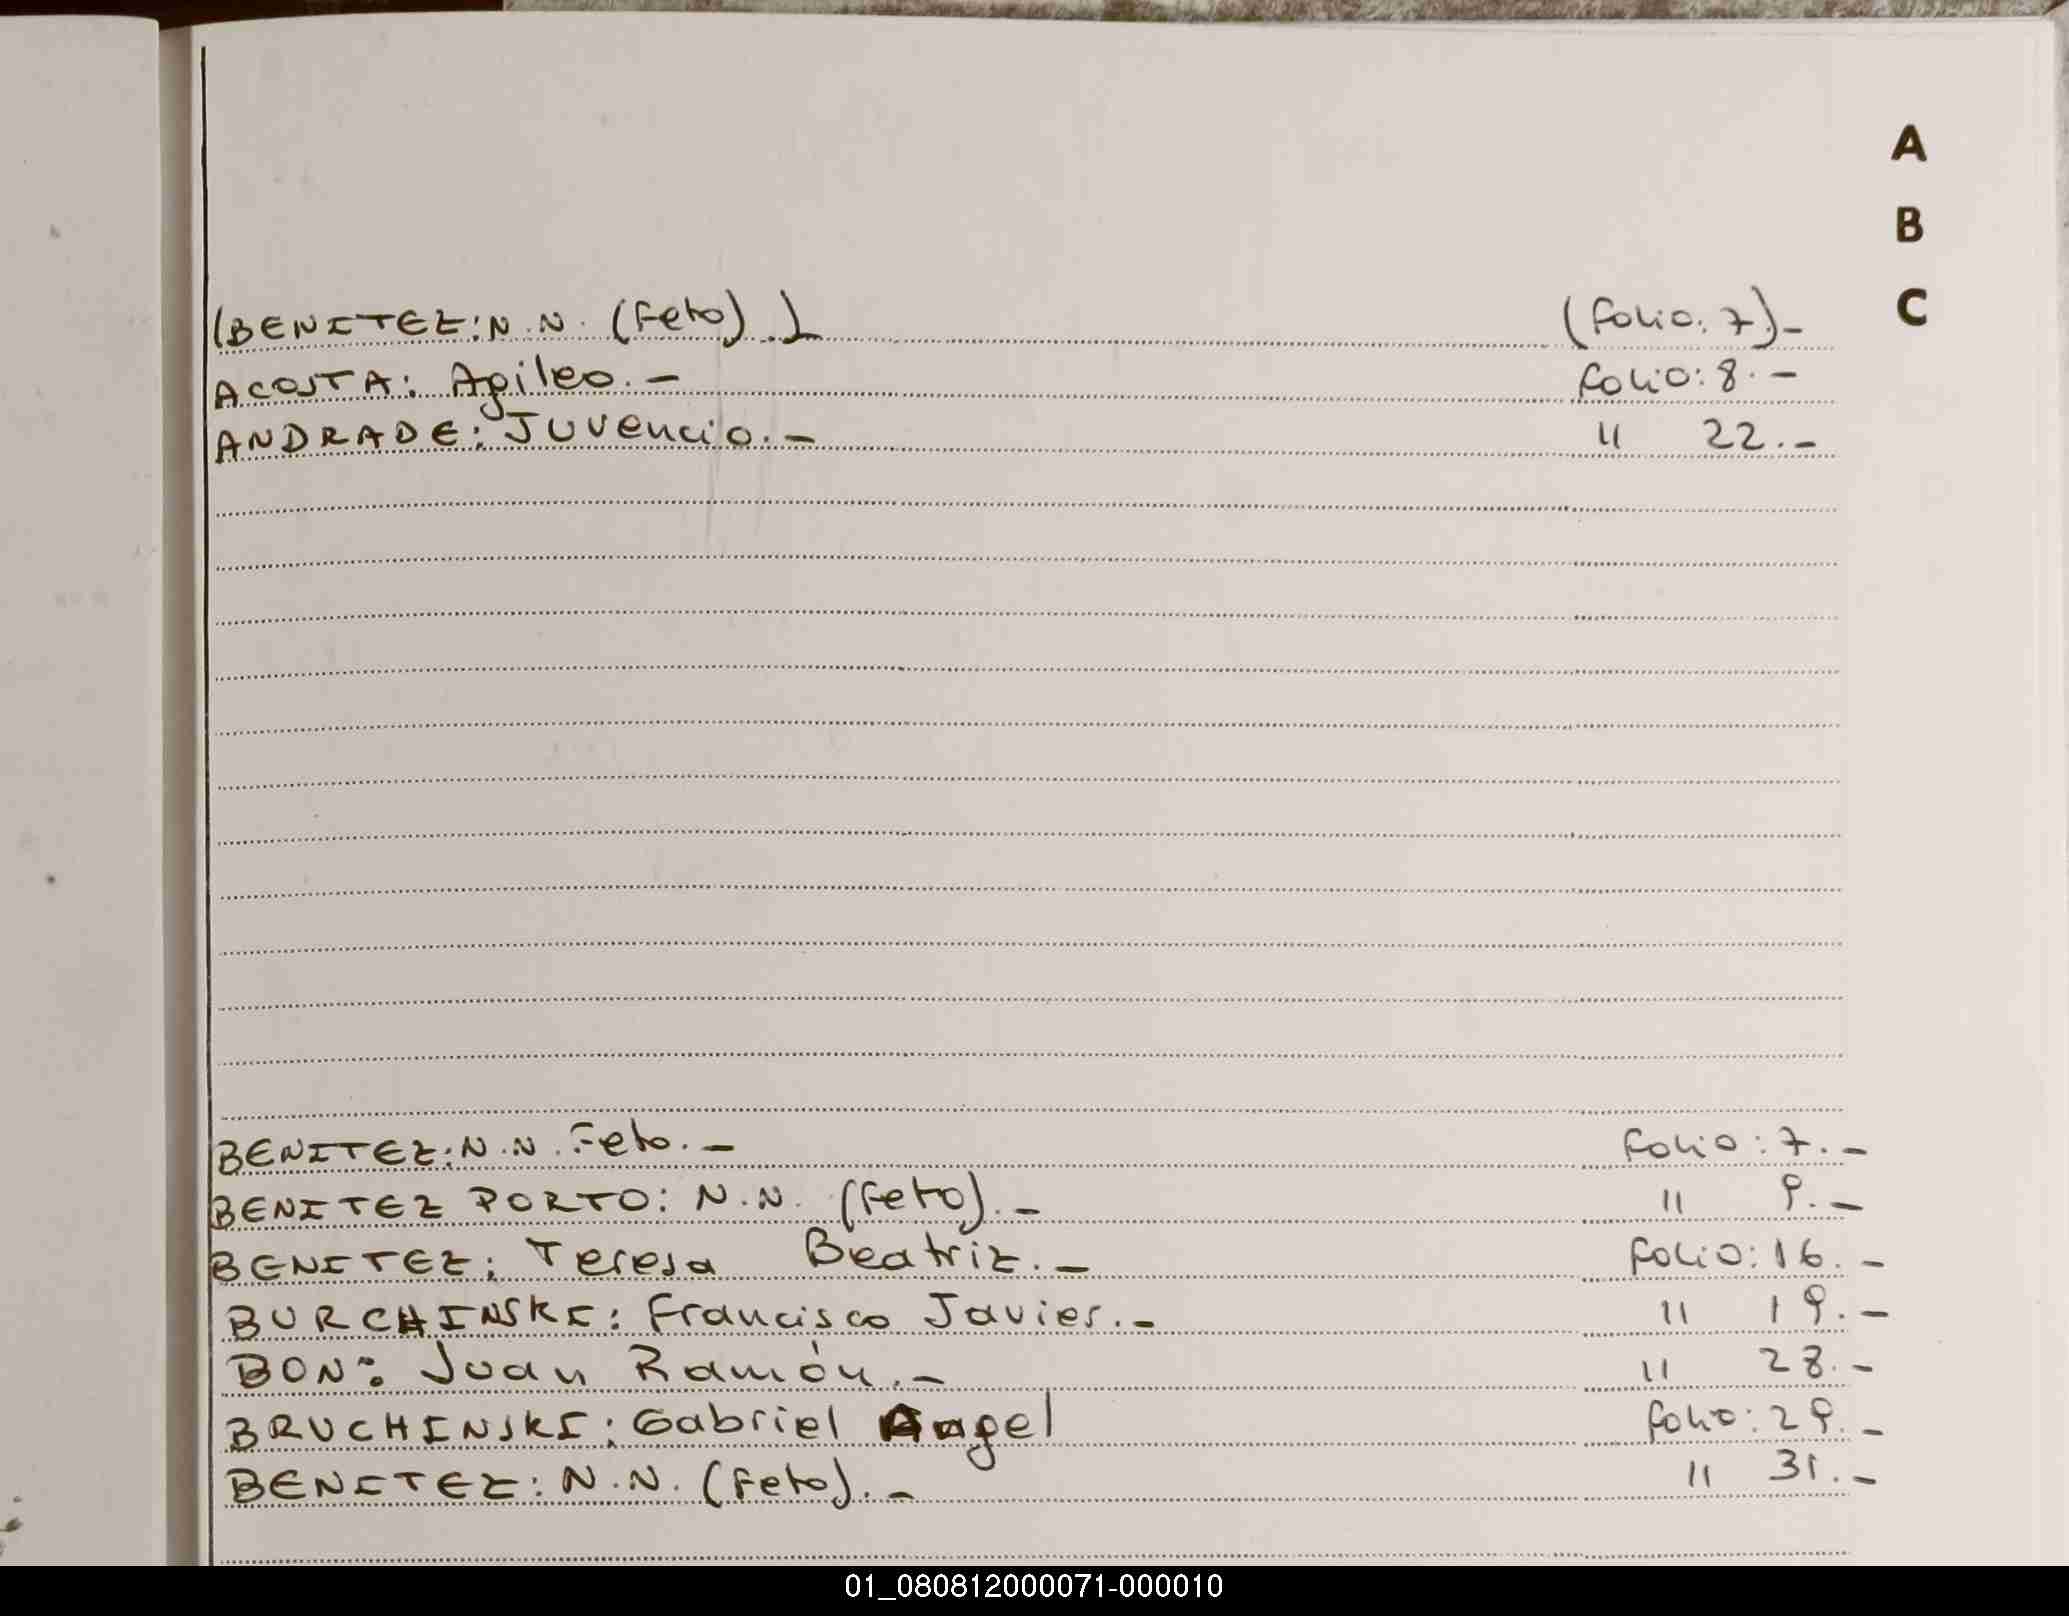 A
B
C
(BENITEZ: N.N. (Feto).) (Folio: 7).-
ACOSTA: Agileo.- Folio: 8.-
ANDRADE: Juvencio.- " 22.-
BENITEZ: N.N. Feto.- Folio: 7.-
BENITEZ PORTO: N.N. (Feto).- " 9.-
BENITEZ: Teresa Beatriz.- Folio: 16.-
BURCHINSKI: Francisco Javier.- " 19.-
BON: Juan Ramón.- " 28.-
BRUCHINSKI: Gabriel Angel Folio: 29.-
BENITEZ: N.N. (Feto).- " 31.-
01_080812000071-000010